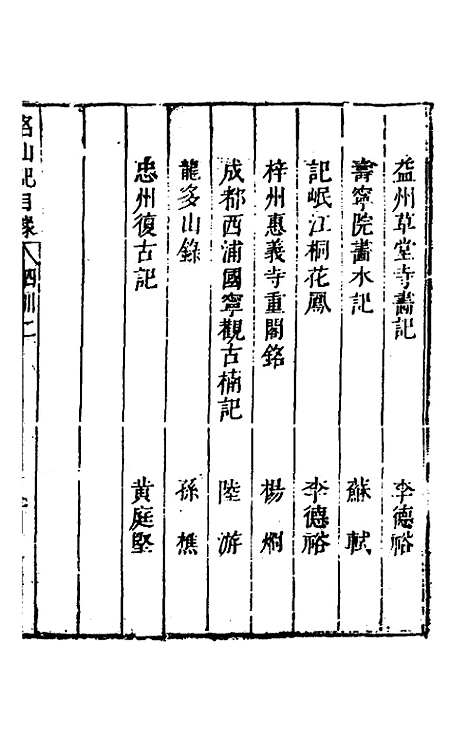 益州草堂寺畵記 李德裕
壽寧院畵水記 蘇軾
記岷江桐花鳳 李德裕
梓州惠義寺重閣銘 楊烱
成都西浦國寧觀古楠記 陸游
龍多山錄 孫樵
忠州復古記 黃庭堅
名山記目錄 四川二